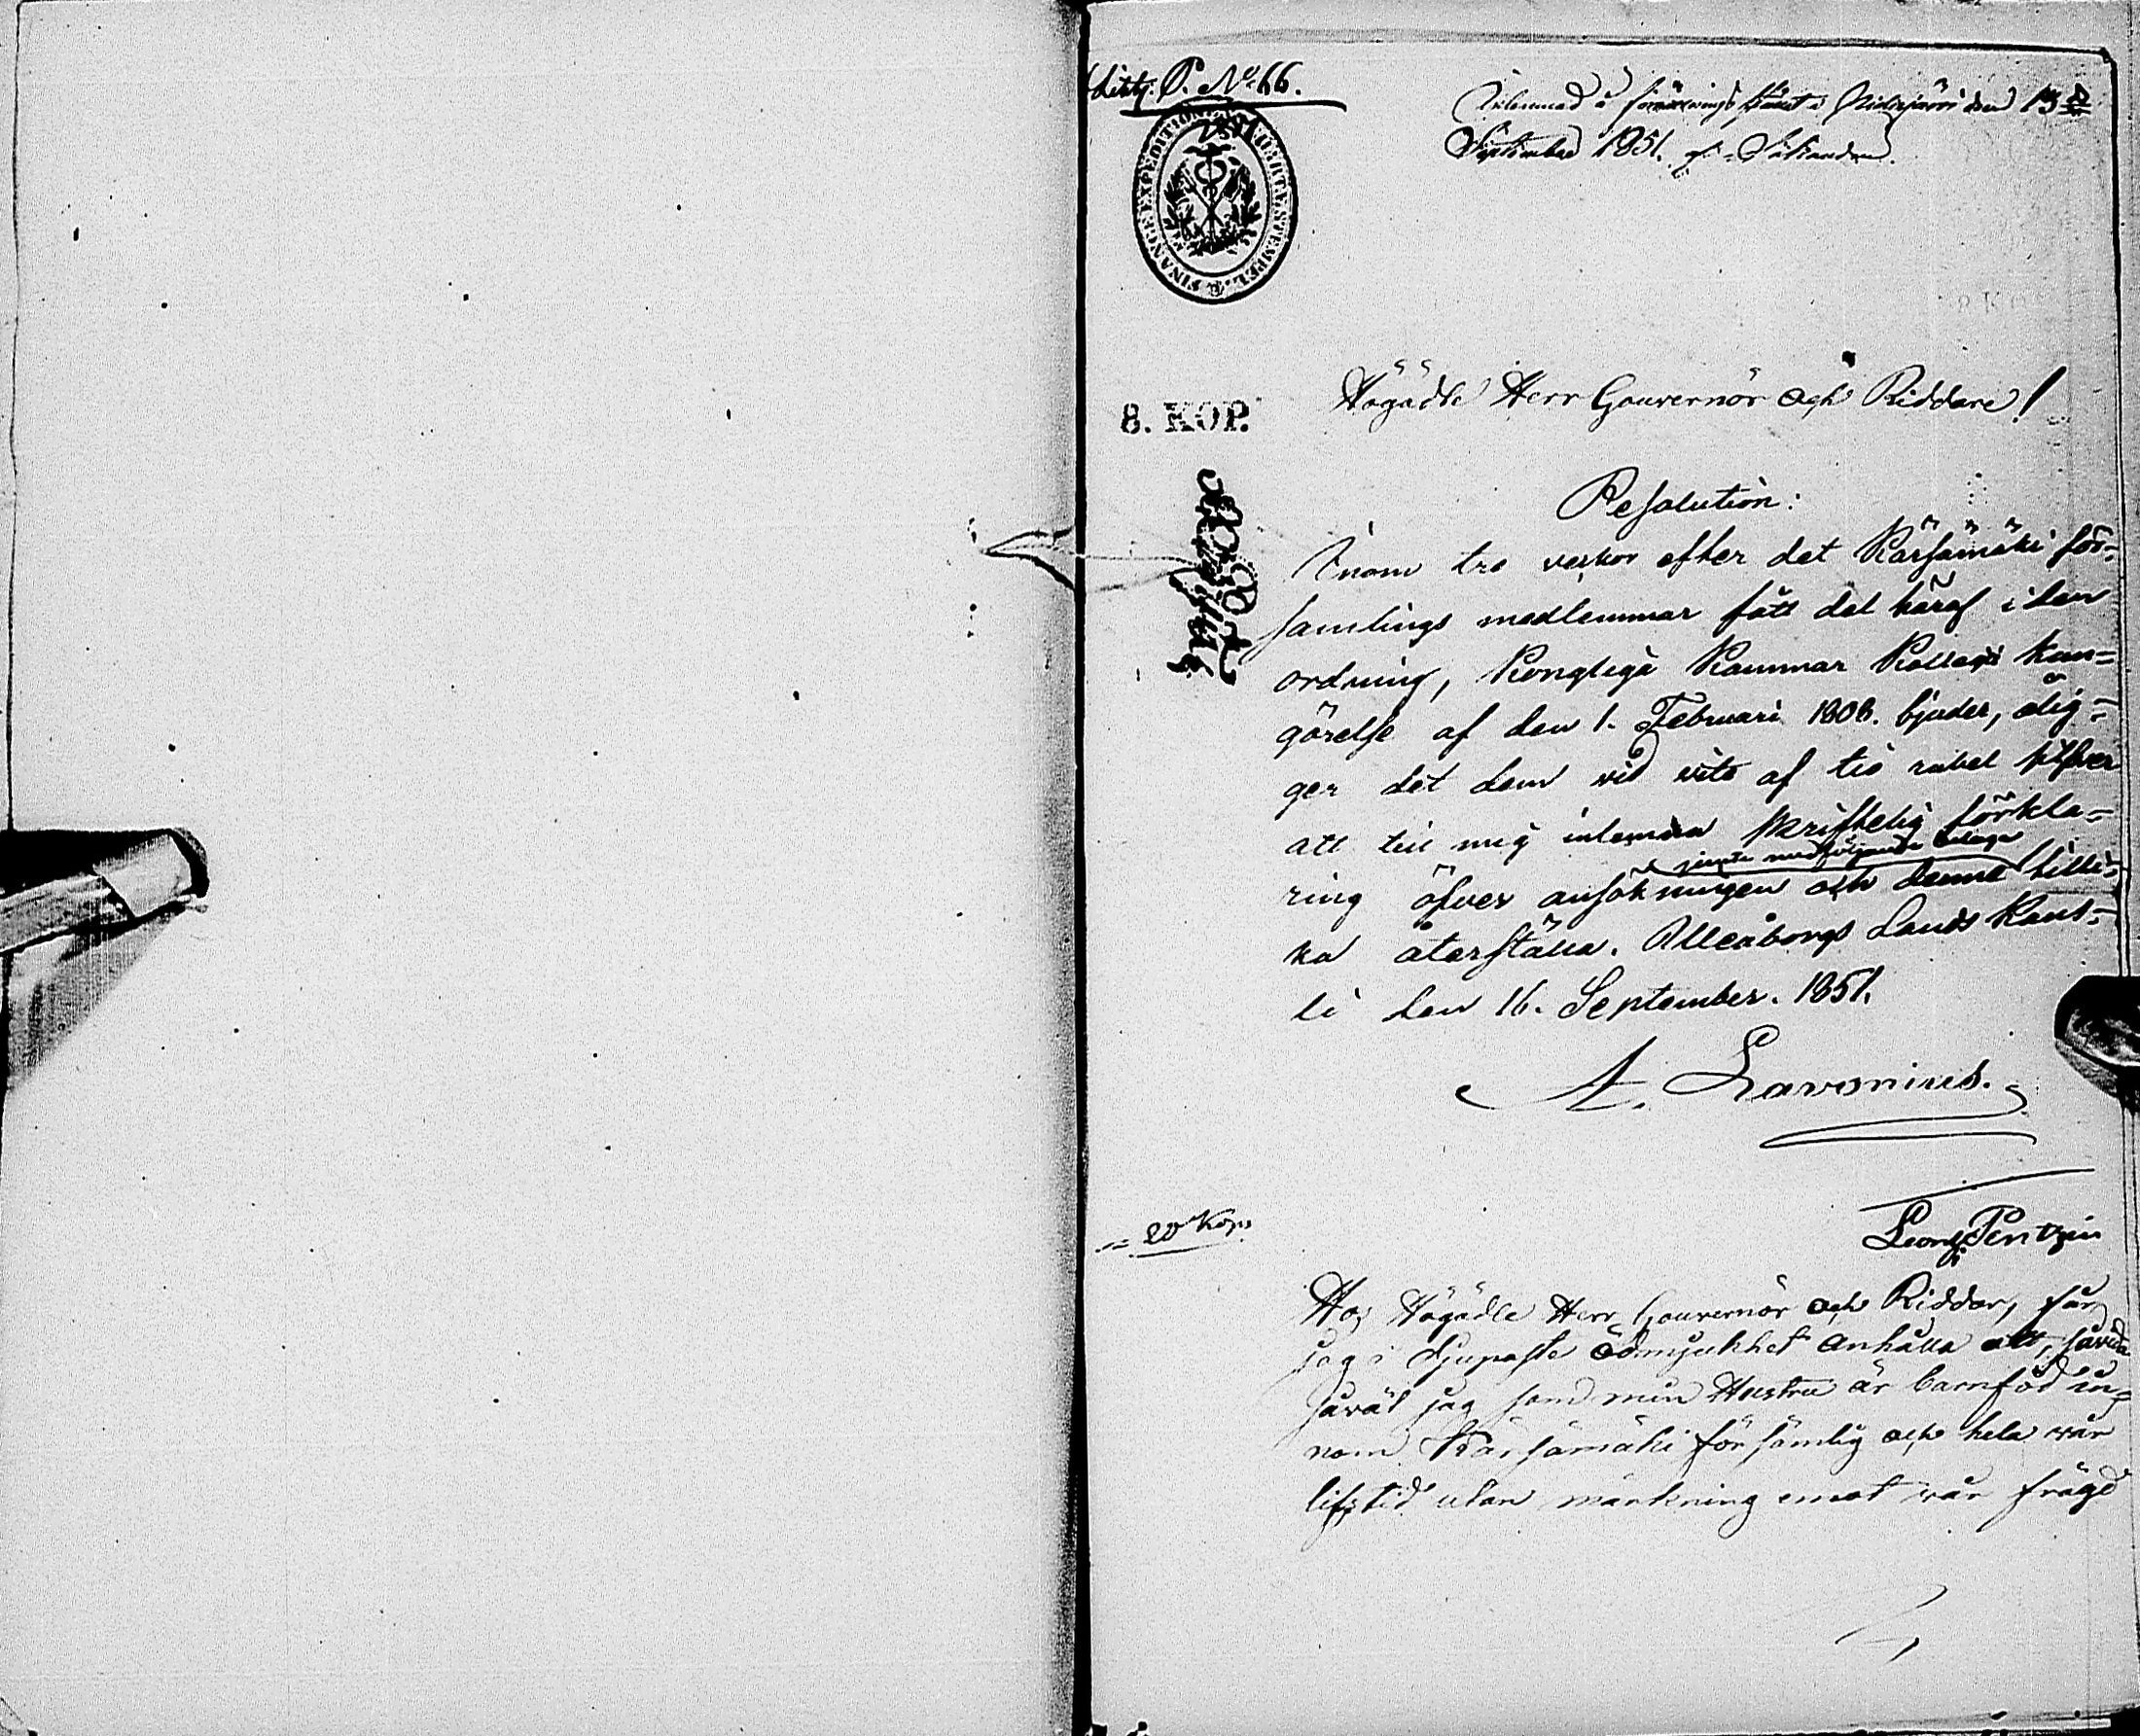 P. No 66.
Inlemnad å förrättnings stället i Pidisjärvi den 13de
September 1851. af Sökanden.
FINANCE EXPEDITION CHARTÆ STEMPEL
1851
8. KOP.
Högädle Herr Gouvernör och Riddare!
Resolution:
Inom tre veckor efter det Kärsämäki för-
samlings medlemmar fått del häraf i den
ordning, Kongliga Kammar Kollegii kun-
görelse af den 1. Februari 1808. bjuder, ålig-
ger det dem vid vite af tio rubel silfver
att till mig inlemna skriftelig förkla-
jemte medföljande bilaga
ring öfver ansökningen och denne tilli-
ka återställa. Uleåborgs Lands Kans-
li den 16. September. 1851.
A. Lavonius.
20 Kop.
Georg Pentzin
Hos Högädle Herr Gouvernör och Riddar, får
jag i djupaste ödmjukhet anhålla att, såvida
såväl jag som min Hustru är barnföd in-
nom Kärsämäki försämlig och hela vår
lifstid utan märkning emot vår frägd